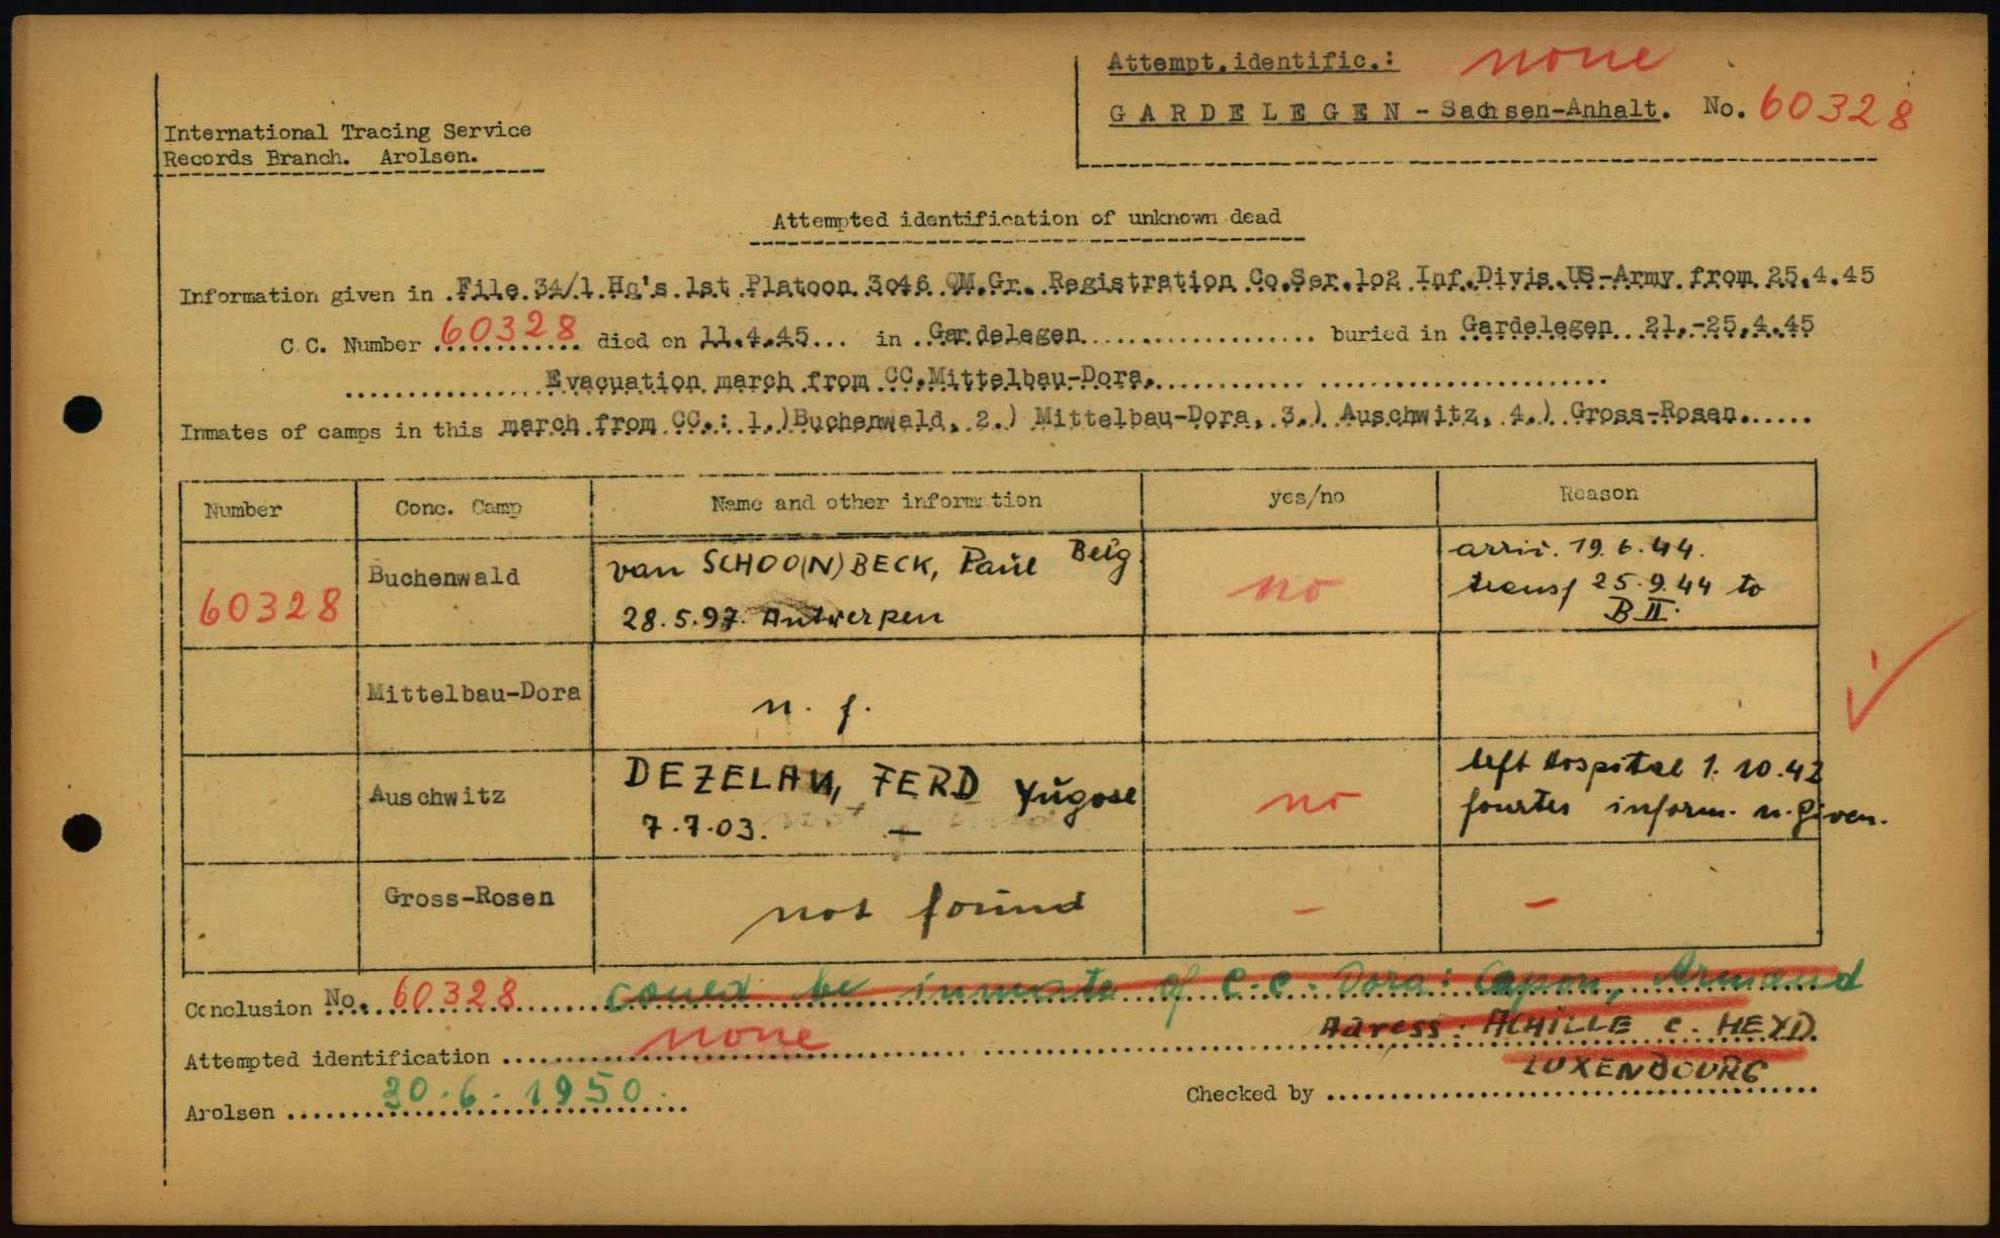 Attempt.identific.: none
GARDELEGEN - Sachsen-Anhalt. No. 60328
International Tracing Service
Records Branch. Arolsen.
Attempted identification of unknown dead
Information given in File 34/1 Hq's 1st Platoon 3046 QM.Gr. Registration Co.Ser.102 Inf.Divis.US-Army from 25.4.45
C.C. Number 60328 died on 11.4.45... in Gardelegen buried in Gardelegen 21.-25.4.45
Evacuation march from CC.Mittelbau-Dora.
Inmates of camps in this march from CC.: 1.)Buchenwald, 2.) Mittelbau-Dora, 3.) Auschwitz, 4.) Gross-Rosen.
Number Conc. Camp Name and other information yes/no Reason
60328 Buchenwald van SCHOO(N)BECK, Paul Belg no arriv. 19.6.44.
28.5.97. Antwerpen transf 25.9.44 to
B II.
Mittelbau-Dora n. f.
Auschwitz DEZELAN, FERD Yugosl no left hospital 1.10.42
7.7.03. — inform. n. given.
Gross-Rosen not found - -
Conclusion No. 60328 could be inmate of C.C. Dora: Capon, Armand
Adress: ACHILLE c. HEYD.
Attempted identification none
LUXENBOURG
Arolsen 30.6.1950. Checked by